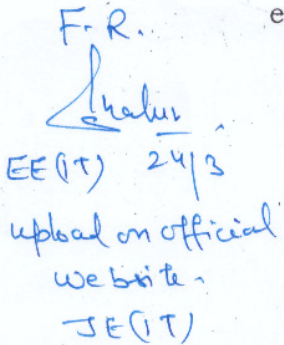 F. R.
e
EE(IT) 24/3
upload on official
website.
JE(IT)